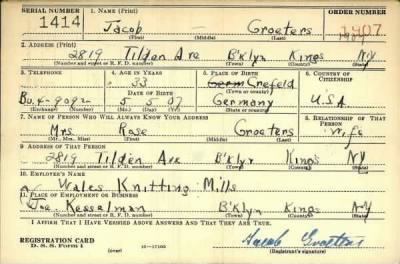 SERIAL NUMBER 1. NAME (Print) ORDER NUMBER
1414 Jacob Groeters 1907
(First) (Middle) (Last)
2. ADDRESS (Print)
2819 Tilden Ave B'klyn Kings NY
(Number and street or R. F. D. number) (Town) (County) (State)
3. TELEPHONE 4. AGE IN YEARS 5. PLACE OF BIRTH 6. COUNTRY OF CITIZENSHIP
33 Crefeld
DATE OF BIRTH (Town or county)
Bu. 4-9092 5 5 07 Germany U.S.A
(Exchange) (Number) (Mo.) (Day) (Yr.) (State or country)
7. NAME OF PERSON WHO WILL ALWAYS KNOW YOUR ADDRESS 8. RELATIONSHIP OF THAT PERSON
Mrs. Rose Groeters wife
(Mr., Mrs., Miss) (First) (Middle) (Last)
9. ADDRESS OF THAT PERSON
2819 Tilden Ave B'klyn Kings NY
(Number and street or R. F. D. number) (Town) (County) (State)
10. EMPLOYER'S NAME
Wales Knitting Mills
11. PLACE OF EMPLOYMENT OR BUSINESS
Kesselman B'klyn Kings NY
(Number and street or R. F. D. number) (Town) (County) (State)
I AFFIRM THAT I HAVE VERIFIED ABOVE ANSWERS AND THAT THEY ARE TRUE.
REGISTRATION CARD
D. S. S. Form 1 (over) 16-17105 Jacob Groeters
(Registrant's signature)